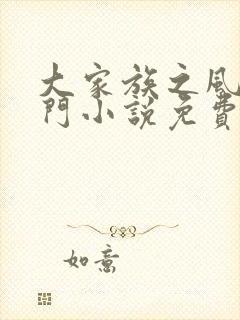 大家族之風
門小說免費
如意